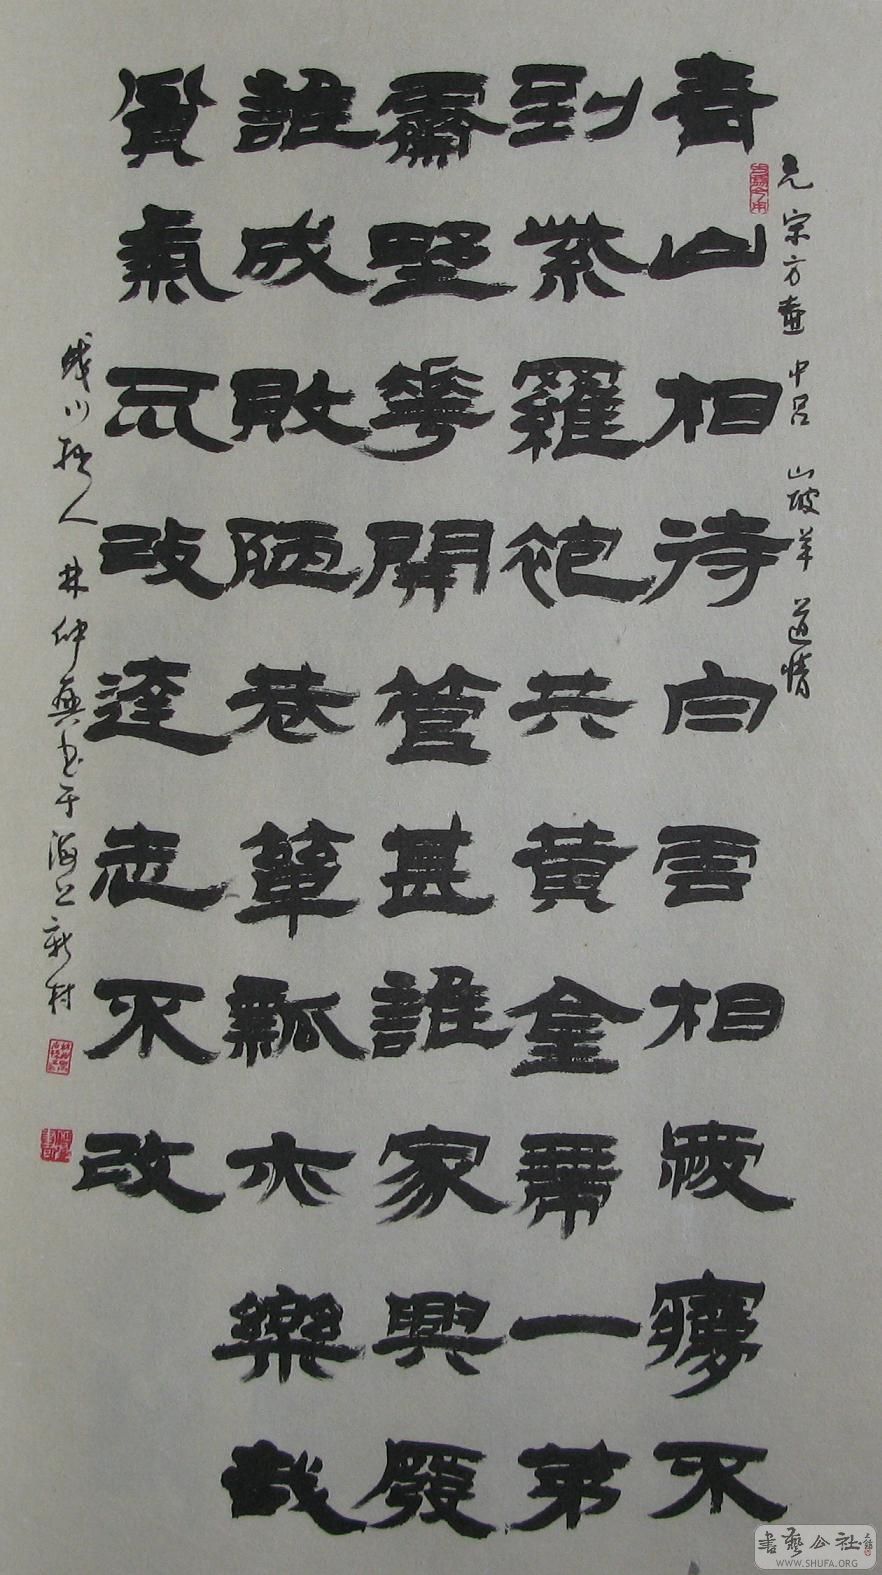 元宋方壺 中呂 山坡羊 道情
青山相待白雲相愛夢不
到紫羅袍共黃金帶一茅
齋野華開管甚誰家興廢
誰成敗陋巷簞瓢亦樂哉
貧氣不改達志不改
川拙人 林仲興書于海上新村
書藝公社
WWW.SHUFA.ORG